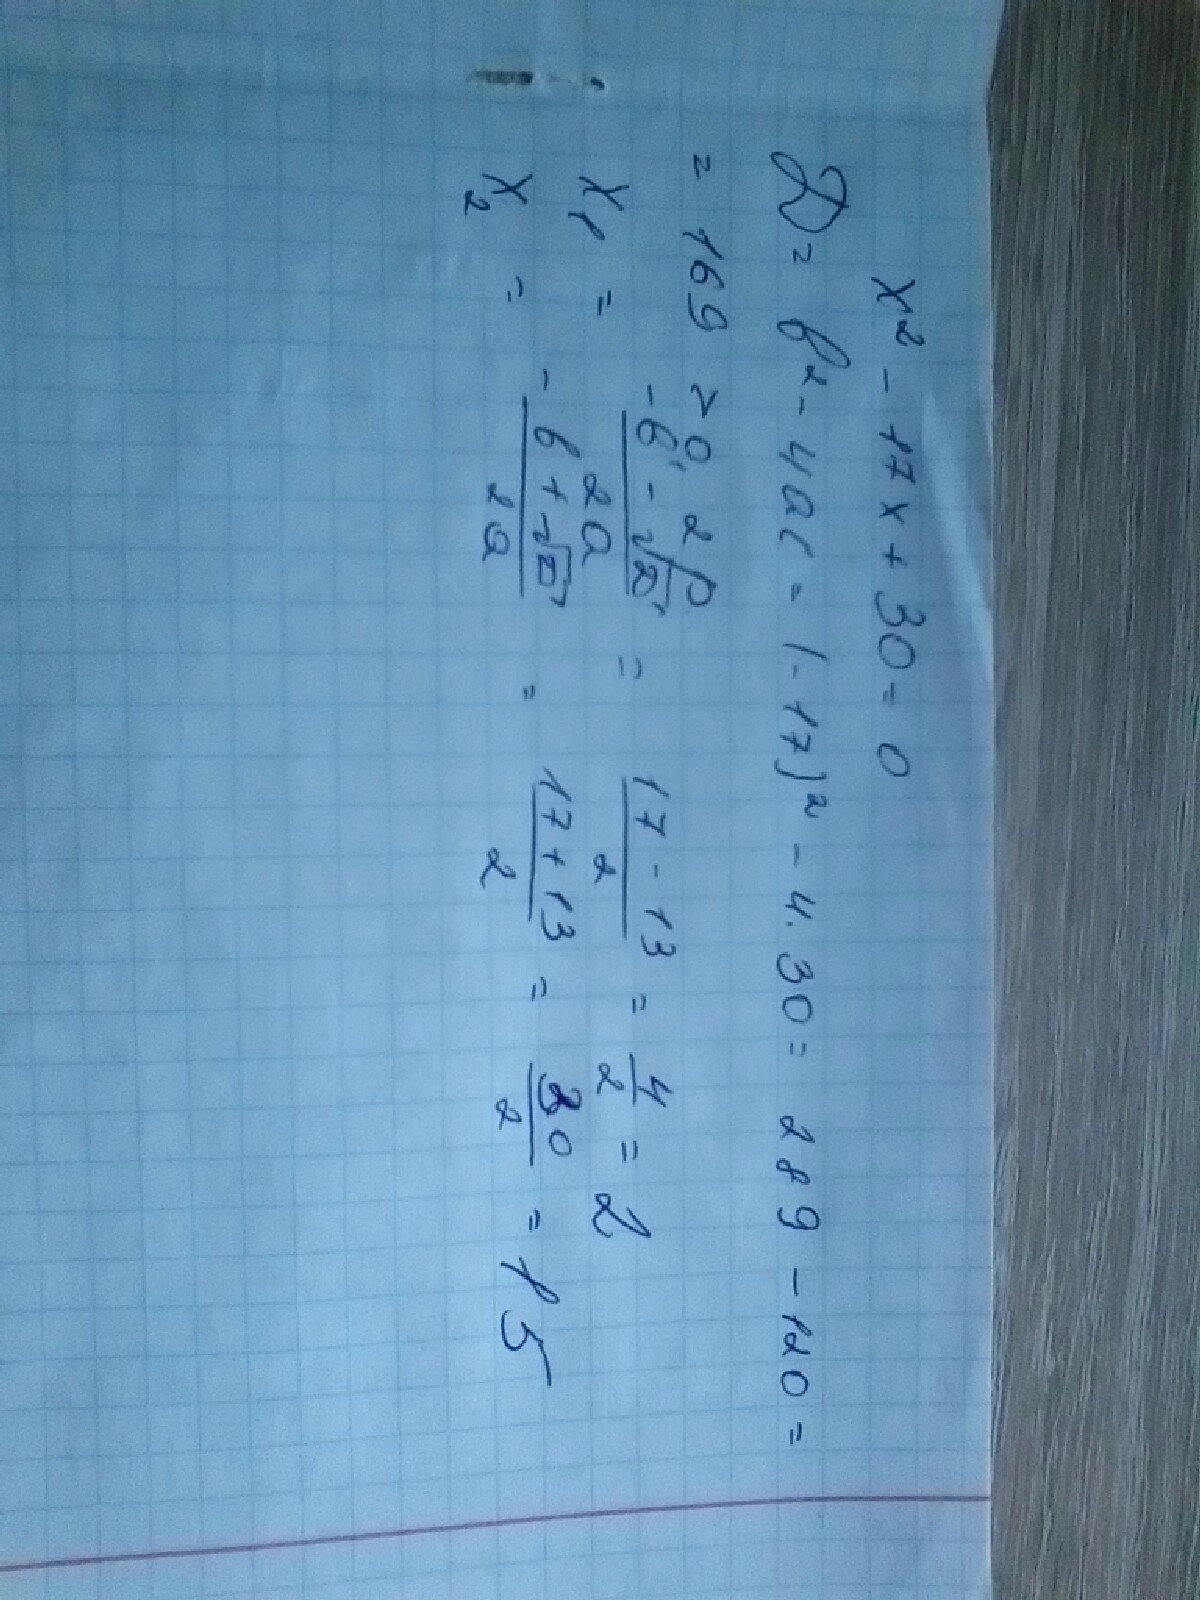 x² - 17x + 30 = 0
D = b² - 4ac = (-17)² - 4·30 = 289 - 120 =
= 169 > 0, 2p
x₁ = (-b - √D)/2a = (17 - 13)/2 = 4/2 = 2
x₂ = (-b + √D)/2a = (17 + 13)/2 = 30/2 = 15